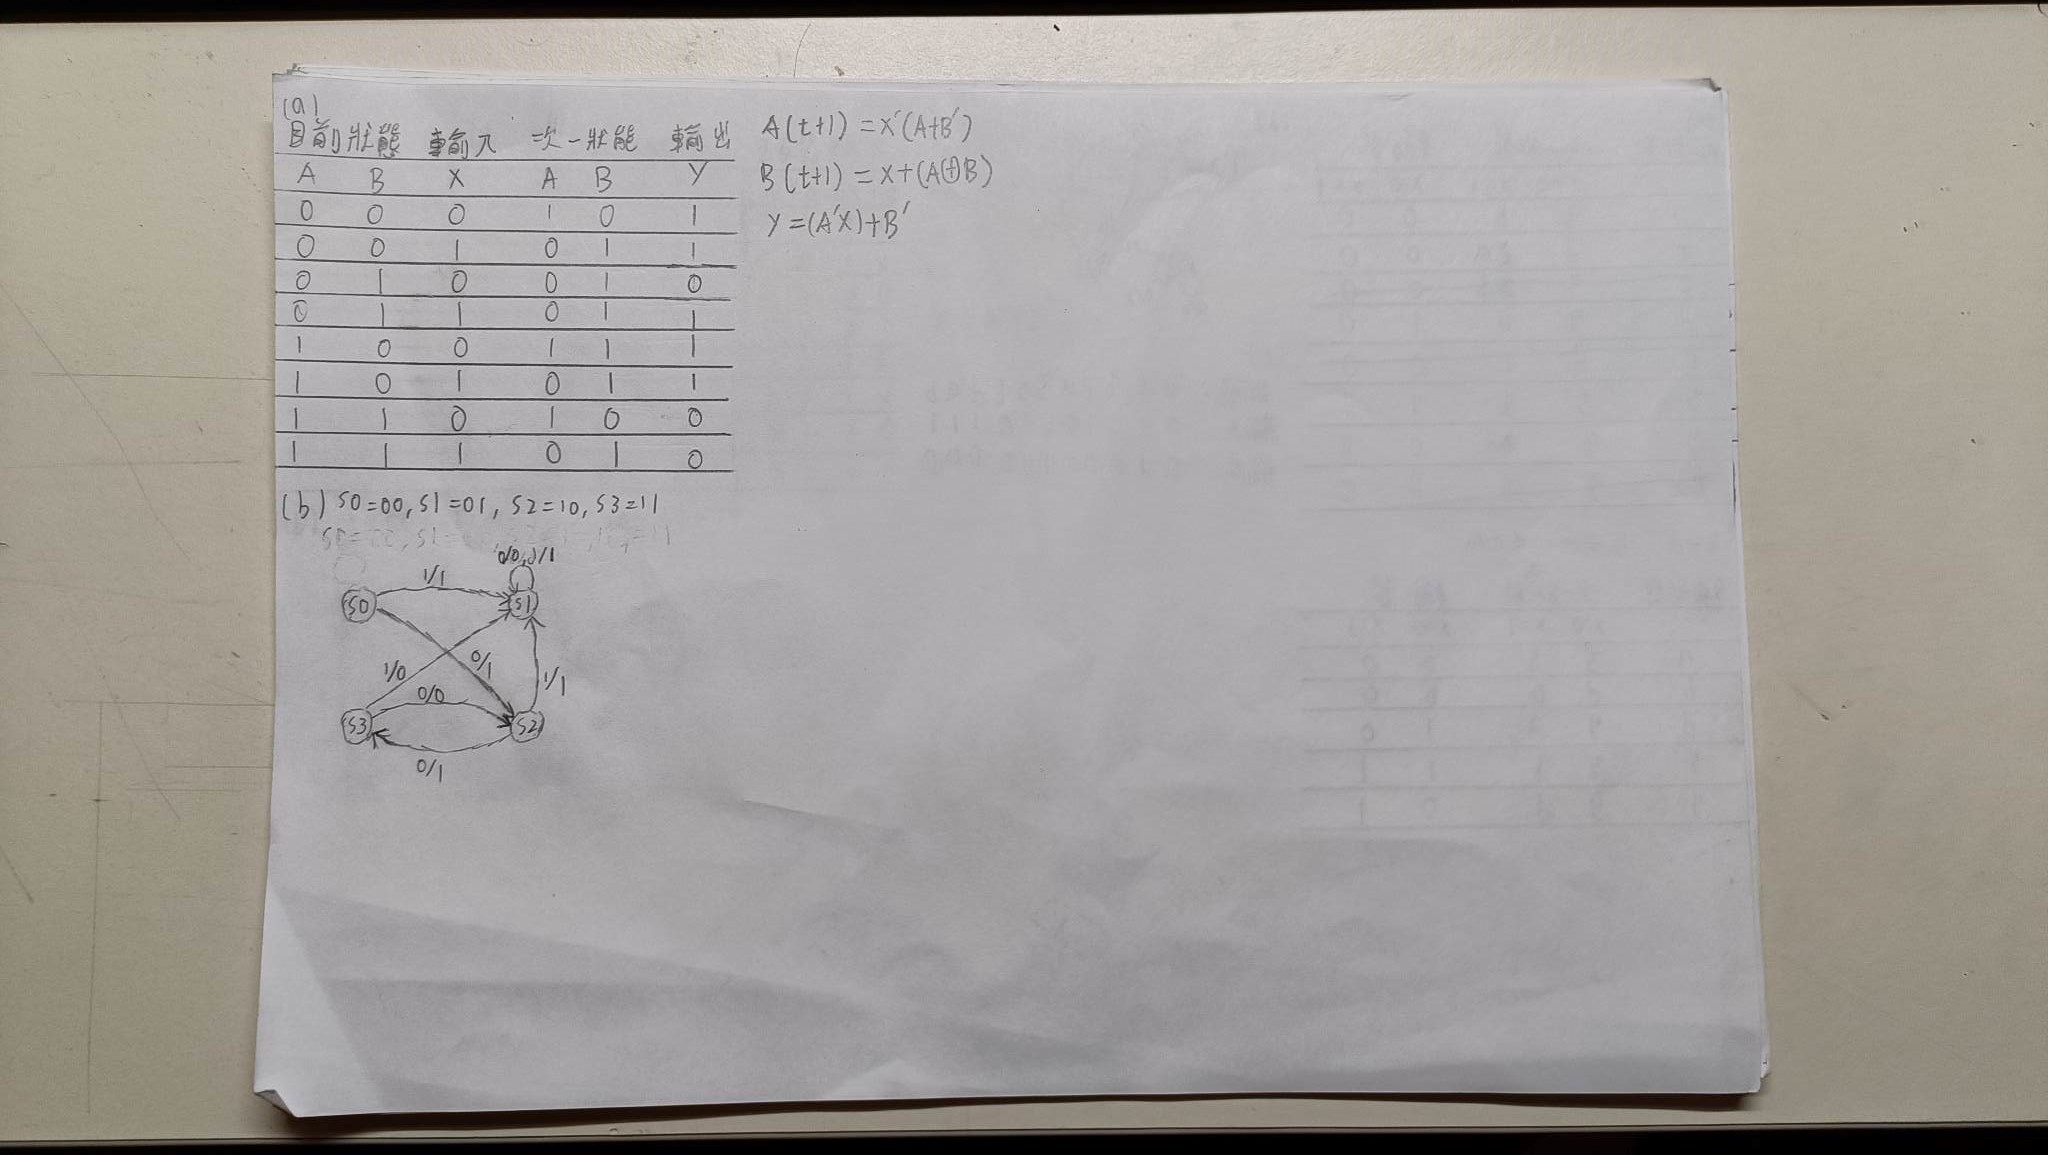 (a)
目前狀態 輸入 次一狀態 輸出
A B X A B Y
0 0 0 1 0 1
0 0 1 0 1 1
0 1 0 0 1 0
0 1 1 0 1 1
1 0 0 1 1 1
1 0 1 0 1 1
1 1 0 1 0 0
1 1 1 0 1 0
A(t+1)=X'(A+B')
B(t+1)=X+(A⊕B)
Y=(A'X)+B'
(b) S0=00, S1=01, S2=10, S3=11
1/1
S0
S1
1/0
0/1
0/0
1/1
S3
S2
0/1